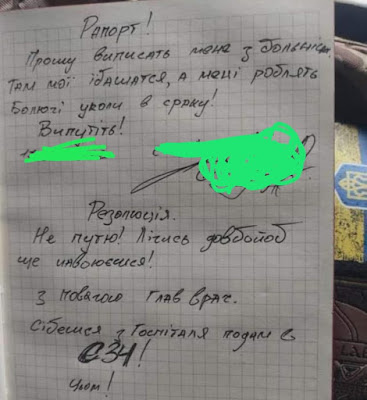 Рапорт!
Прошу виписать мене з больніси.
Там мої їбашатся, а мені роблять
Болючі уколи в сраку!
Випутіть!
Резолюція.
Не путю! Лічись довбойоб
ще навоюєшся!
З повагою глав врач.
Сібешся з Госпіталя подам в
СЗЧ!
Чмом!